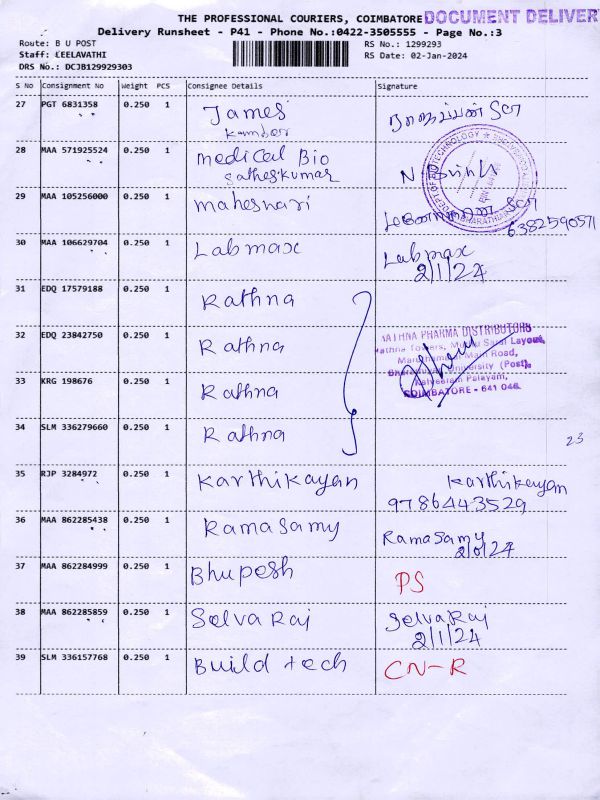 THE PROFESSIONAL COURIERS, COIMBATORE DOCUMENT DELIVER
Delivery Runsheet - P41 - Phone No.:0422-3505555 - Page No.:3
Route: B U POST RS No.: 1299293
Staff: LEELAVATHI RS Date: 02-Jan-2024
DRS No.: DCJB129929303
S No Consignment No Weight PCS Consignee Details Signature
27 PGT 6831358 0.250 1 James
28 MAA 571925524 0.250 1 medical Bio
satheskumar
29 MAA 105256000 0.250 1 maheswari
6382590571
30 MAA 106629704 0.250 1 Labmax Labmax
2/1/24
31 EDQ 17579188 0.250 1 Rathna
32 EDQ 23842750 0.250 1 Rathna
RATHNA PHARMA DISTRIBUTORS
33 KRG 198676 0.250 1 Rathna
University (Post),
Kalveeram Palayam,
COIMBATORE - 641 046.
34 SLM 336279660 0.250 1 Rathna
23
35 RJP 3284972 0.250 1 Karthikayan Karthikayan
9786443529
36 MAA 862285438 0.250 1 Ramasamy Ramasamy
37 MAA 862284999 0.250 1 Bhupesh PS
38 MAA 862285859 0.250 1 Selva Raj Selva Raj
2/1/24
39 SLM 336157768 0.250 1 Build tech CN-R